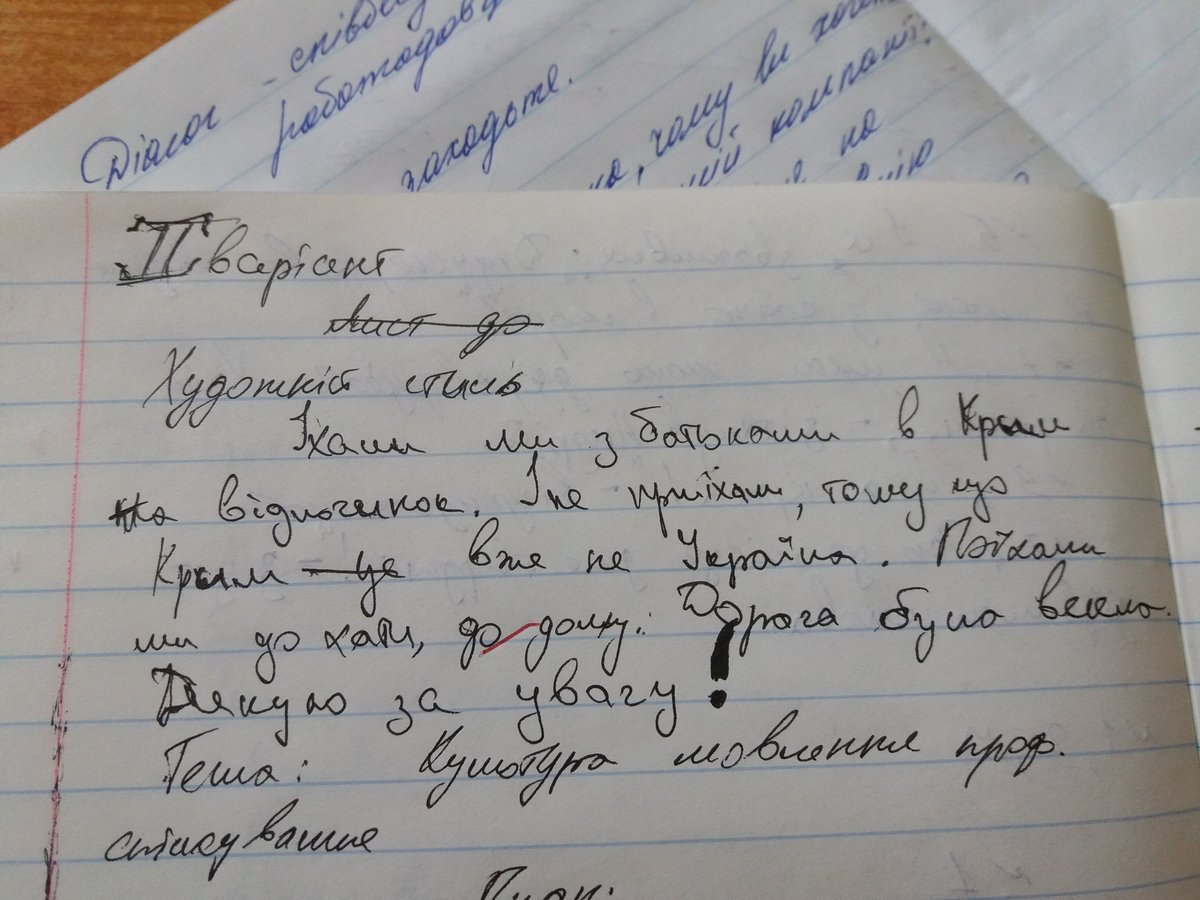 Діалог - співбе
роботодавц
заходьте.
чому ви хоче
ній компанії.
на
II варіант
Лист до
Художній стиль
Їхали ми з батьками в Крым
на відпочинок. І не приїхали, тому що
Крым це вже не Україна. Поїхали
ми до хати, до дому. Дорога була весела.
Дякую за увагу!
Тема: Культура мовлення проф.
спілкування
План: